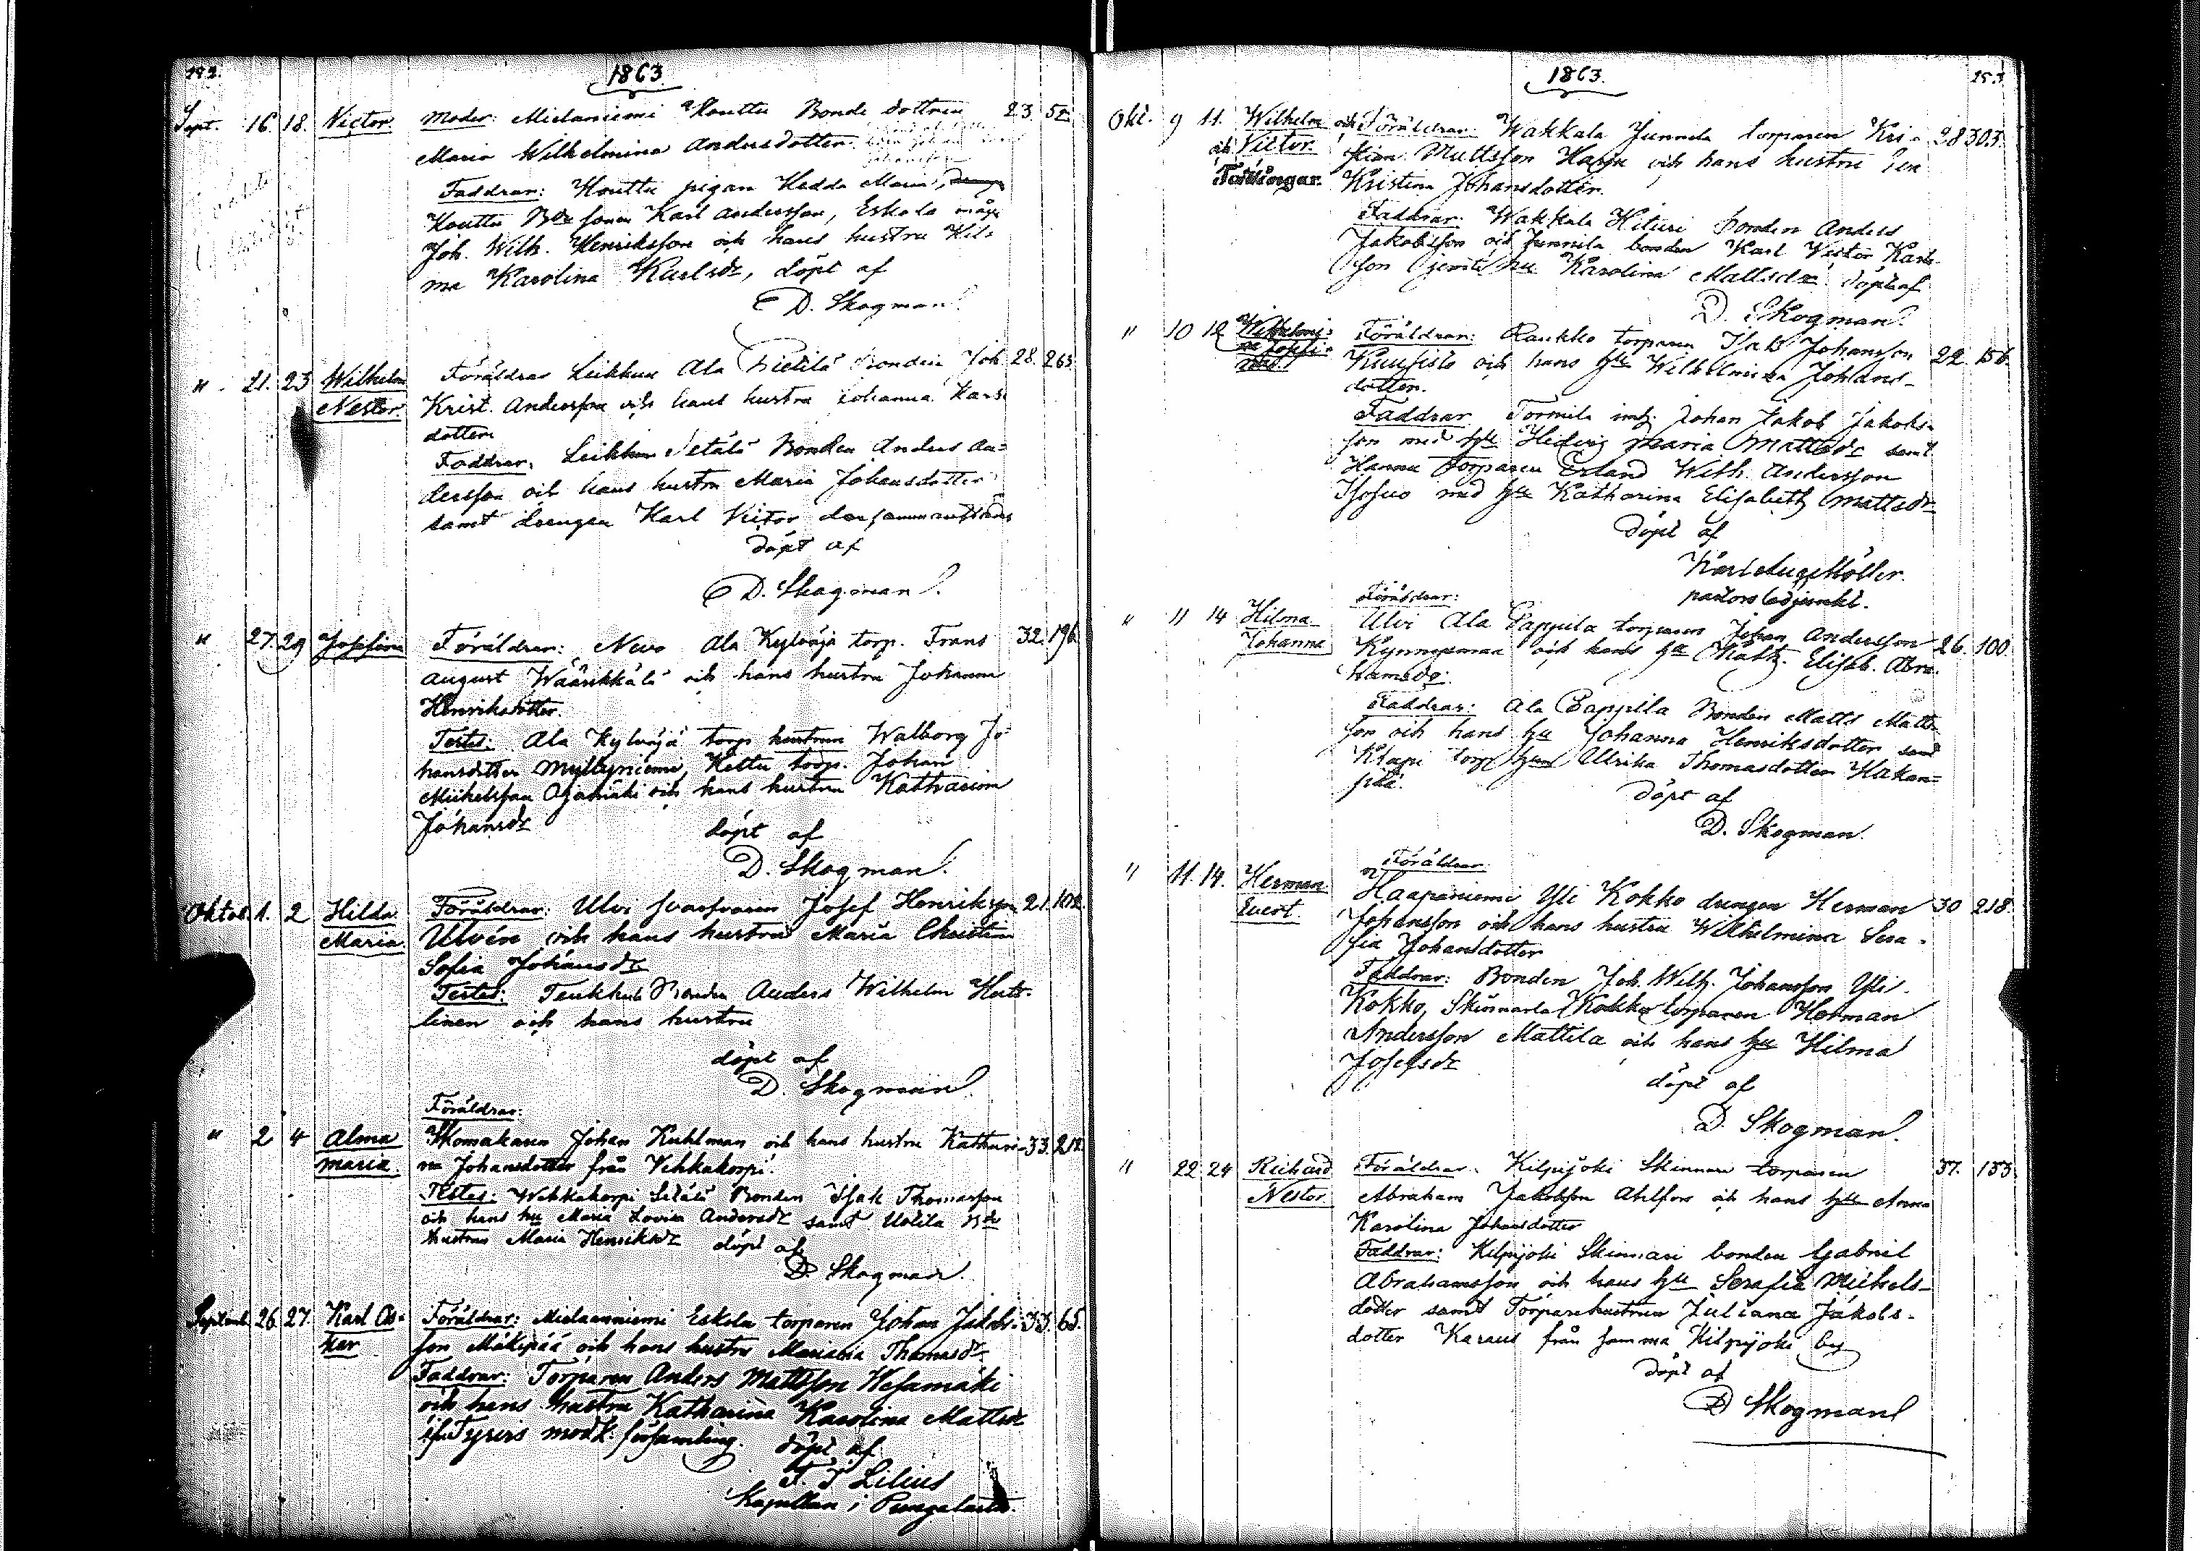 1863
Sept. 16. 18. Victor. Moder: Mielaniemi Bonde dottren 23. 52.
Maria Wilhelmina Andersdotter
Faddrar: pigan Hedda Maria,
sonen Karl Andersson, Eskola måge
Joh. Wilh. Henriksson och hans hustru Hil-
ma Karolina Karlsdr, döpt af
D. Skogman.
" 21. 23 Wilhelm Nestor. Föräldrar Leikkue Ala Pietilä bonden Joh 28. 263.
Krist. Andersson och hans hustru Johanna Karls
dotter
Faddrar: Leikkue Setälä Bonden Anders An-
dersson och hans hustru Maria Johansdotter
samt drengen Karl Victor
döpt af
D. Skogman.
" 27. 29 Josefina Föräldrar: Nevo Ala Kylväjä torp. Frans 32. 196.
August Wäärikkälä och hans hustru Johanna
Henriksdotter.
Testes: Ala Kylväjä torp hustrun Walborg Jo
hansdotter Myllyniemi, Kettu torp. Johan
Mickelsson Ojamäki och hans hustru Katharina
Johansdr
döpt af
D. Skogman.
Oktob. 1. 2 Hilda Maria. Föräldrar: Ulvi Josef Henriksson 21. 102.
Ulvén och hans hustru Maria Christina
Sofia Johansdr
Testes: Bonden Anders Wilhelm
linen och hans hustru
döpt af
D. Skogman.
Föräldrar:
" 2 4 Alma Maria. Skomakaren Johan Kuhlman och hans hustru Kathari- 33. 212.
na Johansdotter från Vehkakorpi.
Testes: Wehkakorpi Setälä Bonden Isak Thomasson
och hans hu Maria Lovisa Andersdr samt Uotila Bde
hustrun Maria Henriksdr döpt af
D. Skogman.
Septemb. 26. 27. Karl Os-kar Föräldrar: Mielaanniemi Eskola torparen Johan Jakobs- 33. 65.
son Mäkipää och hans hustru Mariana Thomasdr
Faddrar: Torparen Anders Mattsson Hesamäki
och hans hustru Katharina Karolina Mattsdr
ifr. Tyrvis modr: församling. döpt af
F. T Lilius
Kapellan i Pungalaitio.
1863. 253
Okt. 9 11. Wilhelm och Victor. Tvillingar. Föräldrar: Wakkala Junnila torparen Kri- 28 303.
stian Mattsson Harju och hans hustru
Kristina Johansdotter.
Faddrar: Wakkala Hituri bonden Anders
Jakobsson och Junnila bonden Karl Victor Karls-
son jemte hu Karolina Mattsdr. döpt af
D. Skogman.
" 10 12 Wilhelmi-na Föräldrar: Raukko torparen Isak Johansson 22. 156.
Kuusisto och hans hu Wilhelmina Johans-
dotter.
Faddrar Tormila inh. Johan Jakob Jakobs-
son med hu Hedvig Maria Mattsdr samt
Hannu torparen Erland Wilh. Andersson
Isosuo med hu Katharina Elisabeth Mattsdr
döpt af
Karl Aug. Möller.
pastors adjunkt.
Föräldrar:
" 11 14 Hilma Johanna Ulvi Ala Pappila torparen Johan Andersson 26. 100.
Kynnysmaa och hans hu Kath. Elisab. Abra-
hamsdr.
Faddrar: Ala Pappila Bonden Matts Matts-
son och hans hu Johanna Henriksdotter samt
torp hun Ulrika Thomasdotter Hakan-
pää.
döpt af
D. Skogman.
Föräldrar
" 11. 14. Herman Evert. Haapaniemi Yli Kokko drengen Herman 30 218.
Johansson och hans hustru Wilhelmina Sera-
fia Johansdotter
Faddrar: Bonden Joh. Wilh. Johansson Yli
Kokko, Skinnarla Kokko torparen Herman
Andersson Mattila och hans hu Hilma
Josefsdr
döpt af
D. Skogman.
" 22. 24 Richard Nestor. Föräldrar. Kilpijoki Skinnari torparen 37. 133.
Abraham Jakobsson Ahlfors och hans hu Anna
Karolina Johansdotter
Faddrar: Kilpijoki Skinnari bonden Gabriel
Abrahamsson och hans hu Serafia Michels-
dotter samt Torparehustrun Juliana Jakobs-
dotter Karaus från samma Kilpijoki by
döpt af
D Skogman